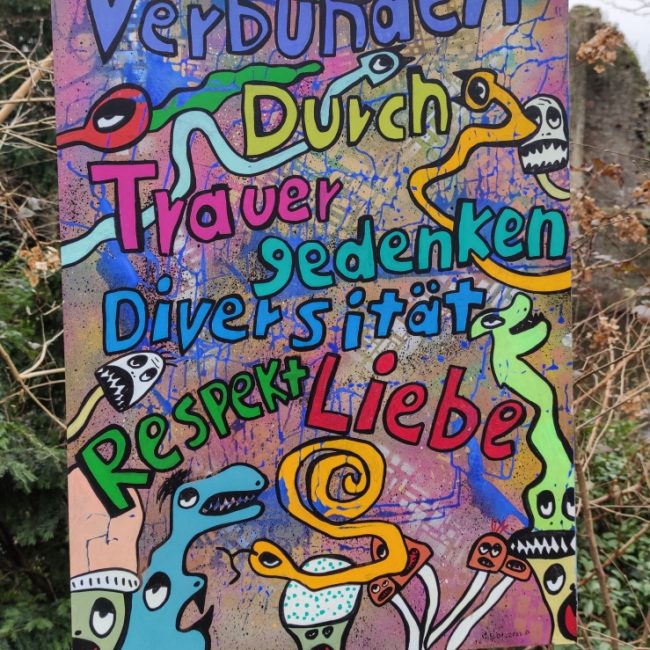 Verbunden
Durch
Trauer
gedenken
Diversität
Respekt Liebe